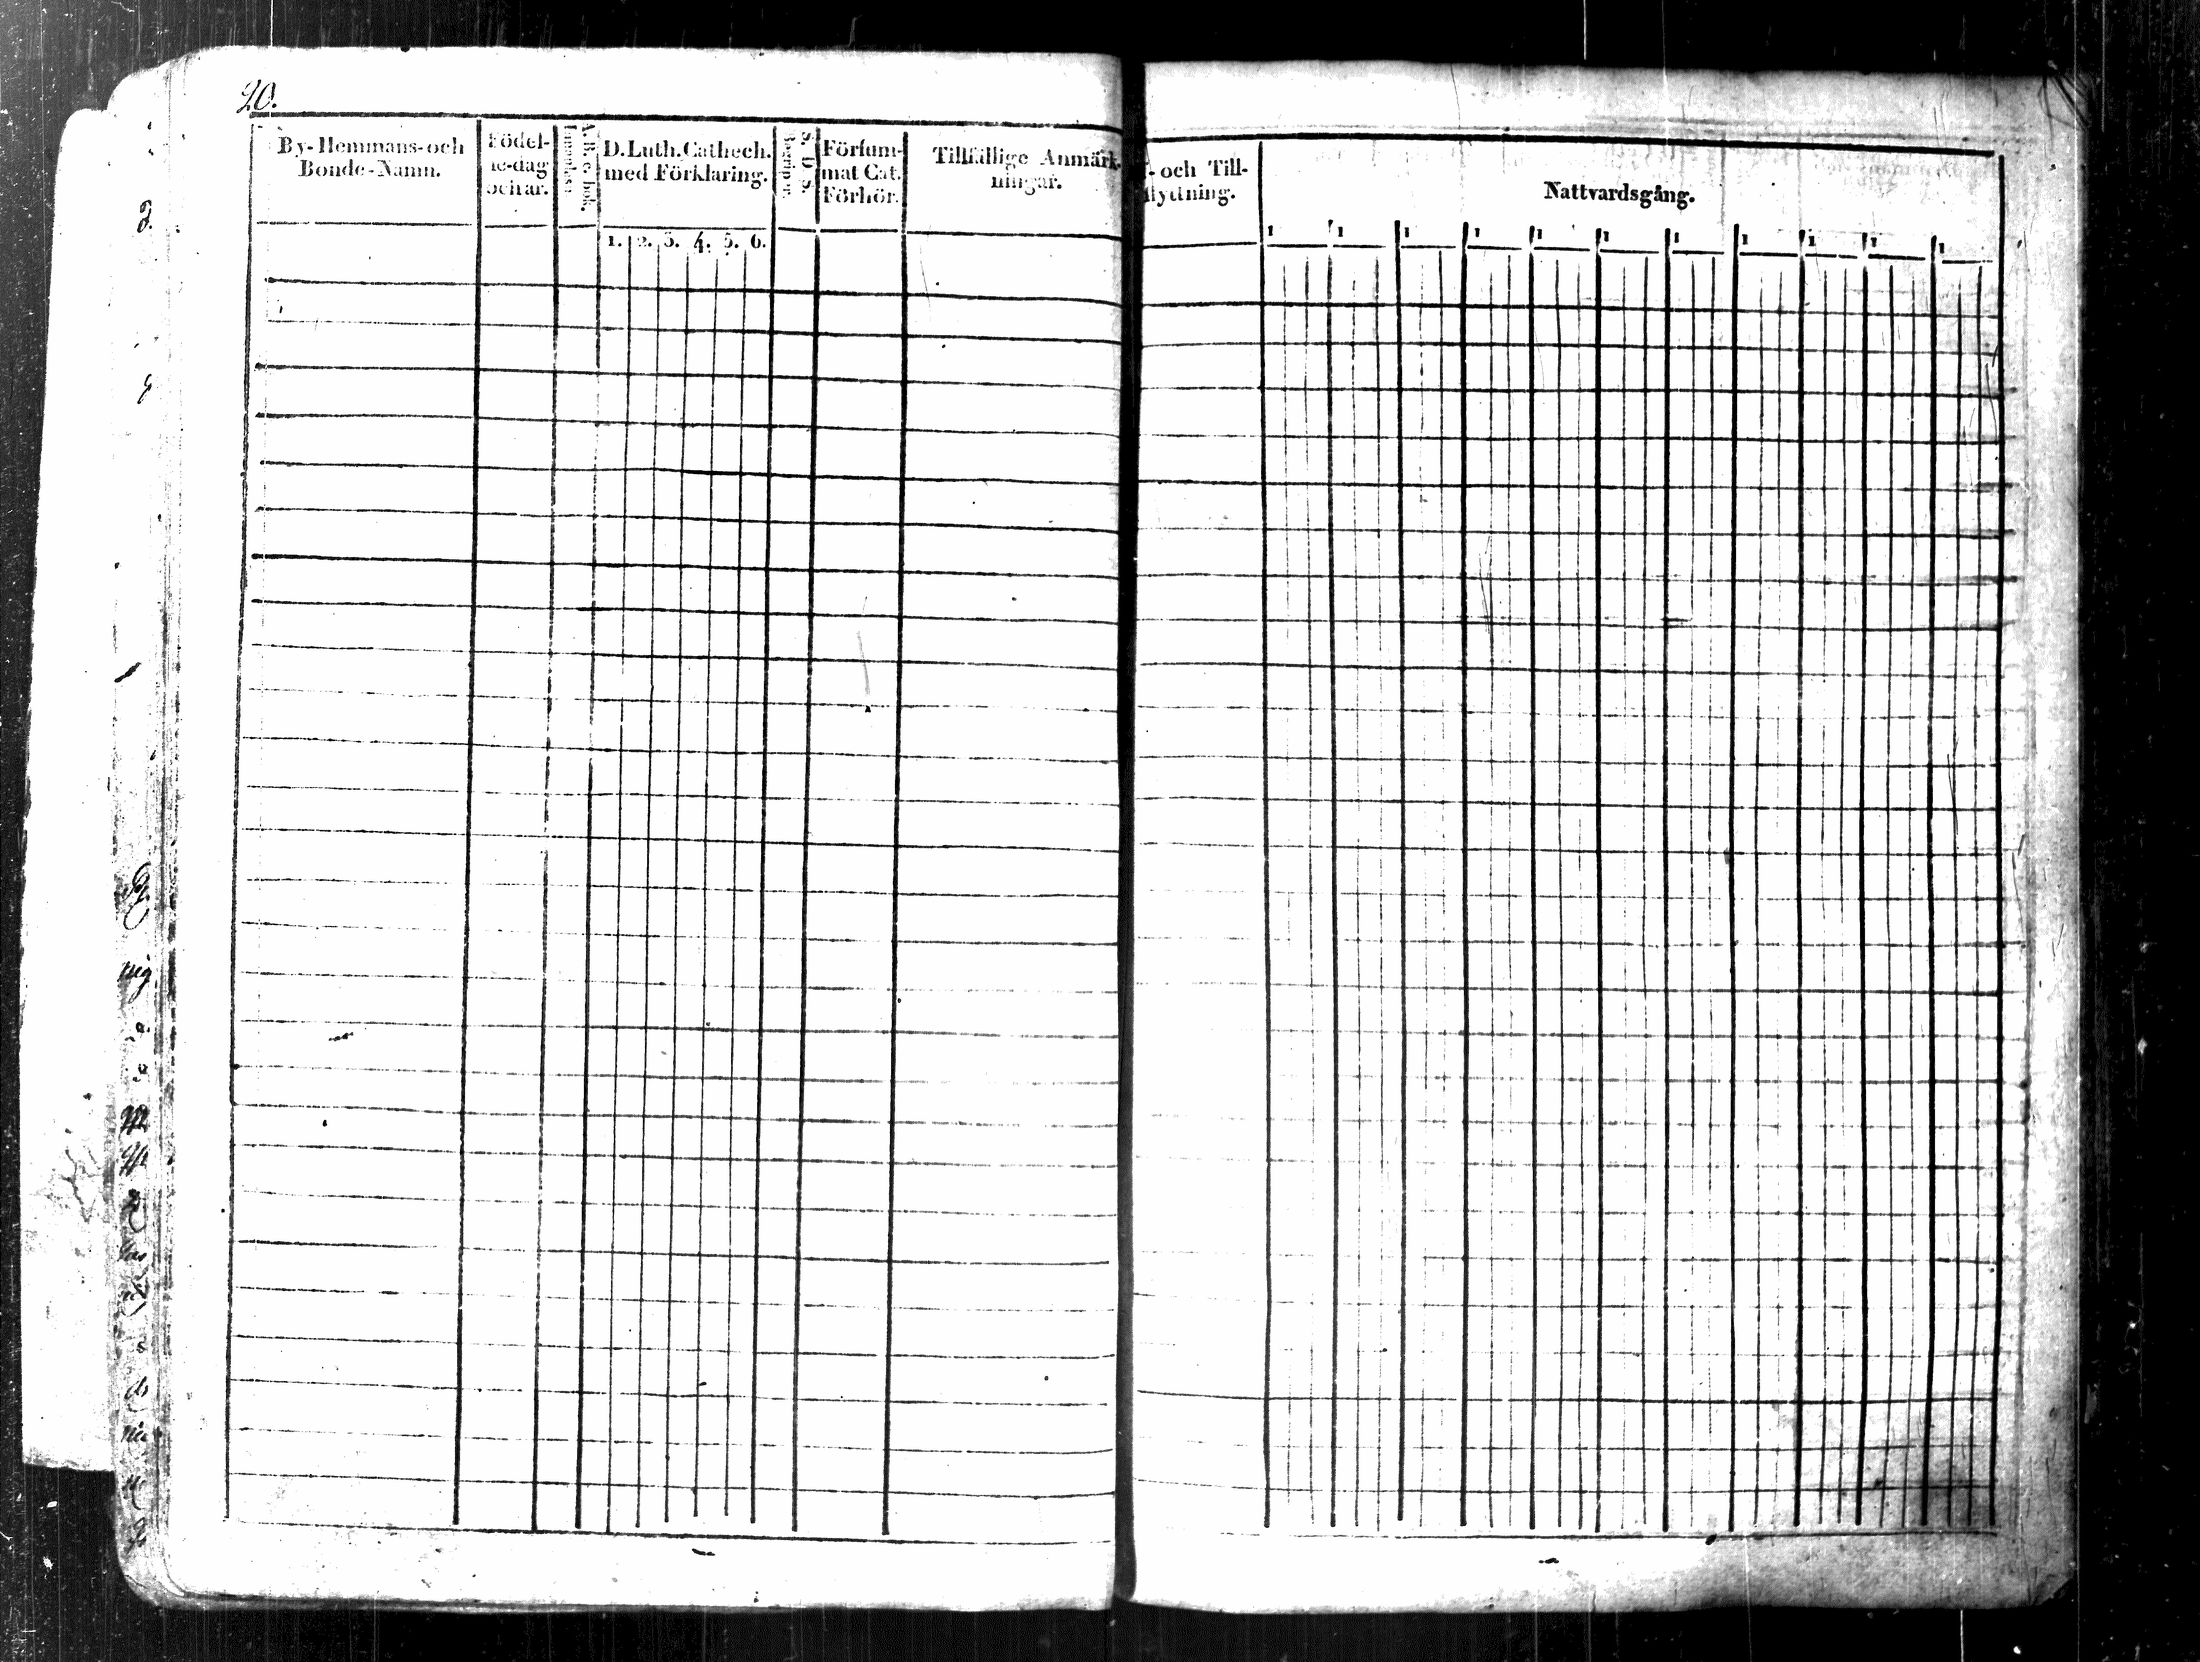 20.
By- Hemmans- och
Bonde-Namn.
Födel-
se-dag
och år.
A. B. c. bok.
Innanläsn.
D. Luth. Cathech.
med Förklaring.
1. 2. 3. 4. 5. 6.
S. D. S.
Begripn.
Försum-
mat Cat.
Förhör.
Tillfällige Anmärk-
ningar.
- och Till-
flyttning.
Nattvardsgång.
1 1 1 1 1 1 1 1 1 1 1